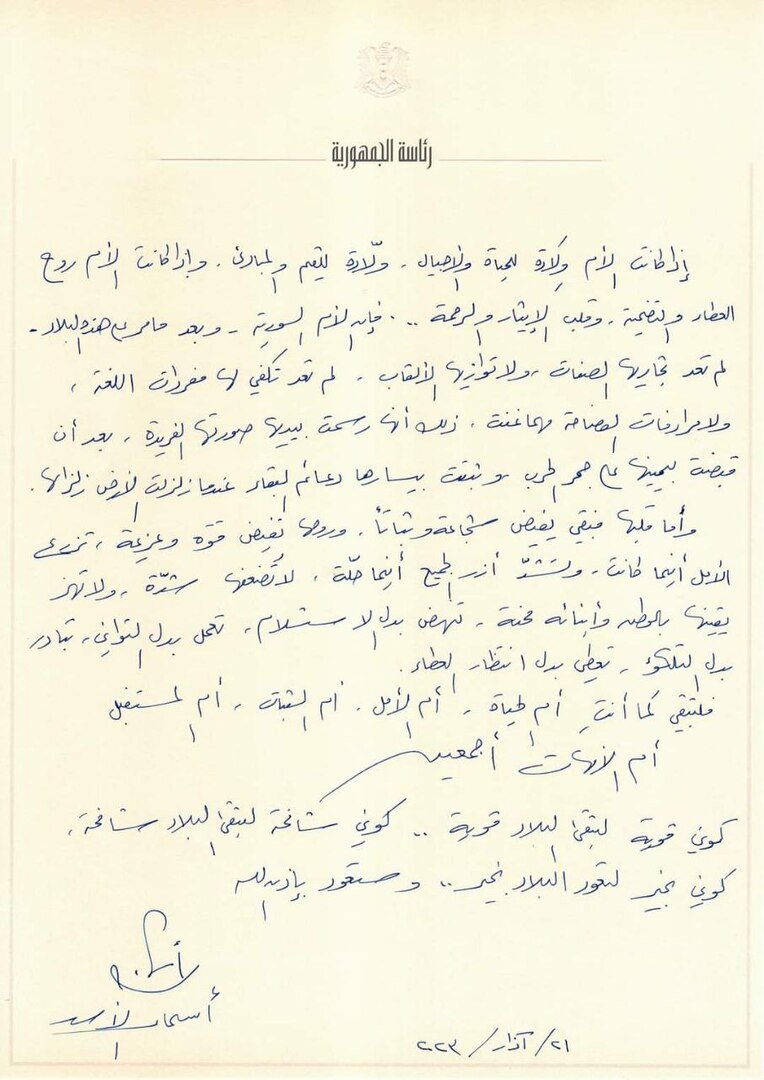 رئاسة الجمهورية
إذا كانت الأم ولّادة للحياة والأجيال، ولّادة للقيم والمبادئ، وإذا كانت الأم روح
العطاء والتضحية، وقلب الإيثار والرحمة .. فإن الأم السورية - وبعد ما مر على هذه البلاد -
لم تعد تجاريها الصفات، ولا توازيها الألقاب، لم تعد تكفي لها مفردات اللغة،
ولا مرادفات الفصاحة مهما غنت، ذلك أنها رسمت بيديها صورتها الفريدة، بعد أن
قبضت بيمينها على جمر الحرب، وثبتت بيسارها دعائم البقاء عندما زلزلت الأرض زلزالها.
وأما قلبها فبقي يفيض شجاعة وثباتاً، وروحها تفيض قوة وعزيمة، تزرع
الأمل أينما كانت، وتشدّ أزر الجميع أينما حلّت، لا تُضعفها شدّة، ولا تهز
يقينها بالوطن وأبنائه محنة، تنهض بدل الاستسلام، تعمل بدل التواني، تبادر
بدل التلكؤ، تعطي بدل انتظار العطاء.
فلتبقي كما أنتِ أم الحياة، أم الأمل، أم الثبات، أم المستقبل
أم الأمهات أجمعين
كوني قوية لتبقى البلاد قوية .. كوني شامخة لتبقى البلاد شامخة،
كوني بخير لتعود البلاد بخير .. وستعود بإذن الله
أسماء الأسد
٢١/ آذار/ ٢٠٢٣